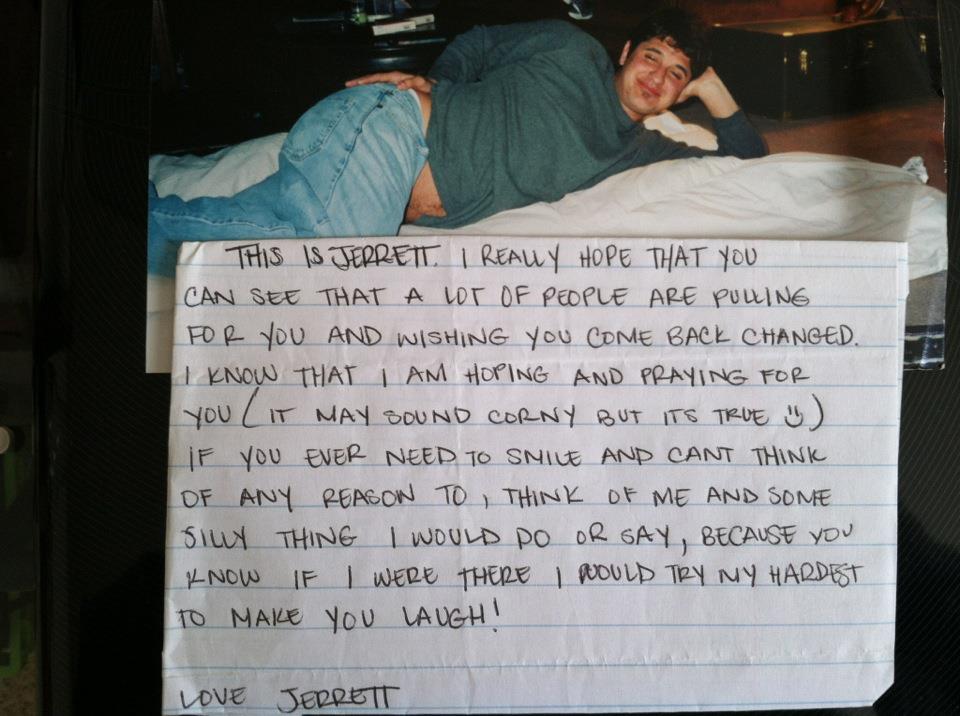 THIS IS JERRETT. I REALLY HOPE THAT YOU
CAN SEE THAT A LOT OF PEOPLE ARE PULLING
FOR YOU AND WISHING YOU COME BACK CHANGED.
I KNOW THAT I AM HOPING AND PRAYING FOR
YOU (IT MAY SOUND CORNY BUT ITS TRUE :))
IF YOU EVER NEED TO SMILE AND CANT THINK
OF ANY REASON TO, THINK OF ME AND SOME
SILLY THING I WOULD DO OR SAY, BECAUSE YOU
KNOW IF I WERE THERE I WOULD TRY MY HARDEST
TO MAKE YOU LAUGH!
LOVE JERRETT